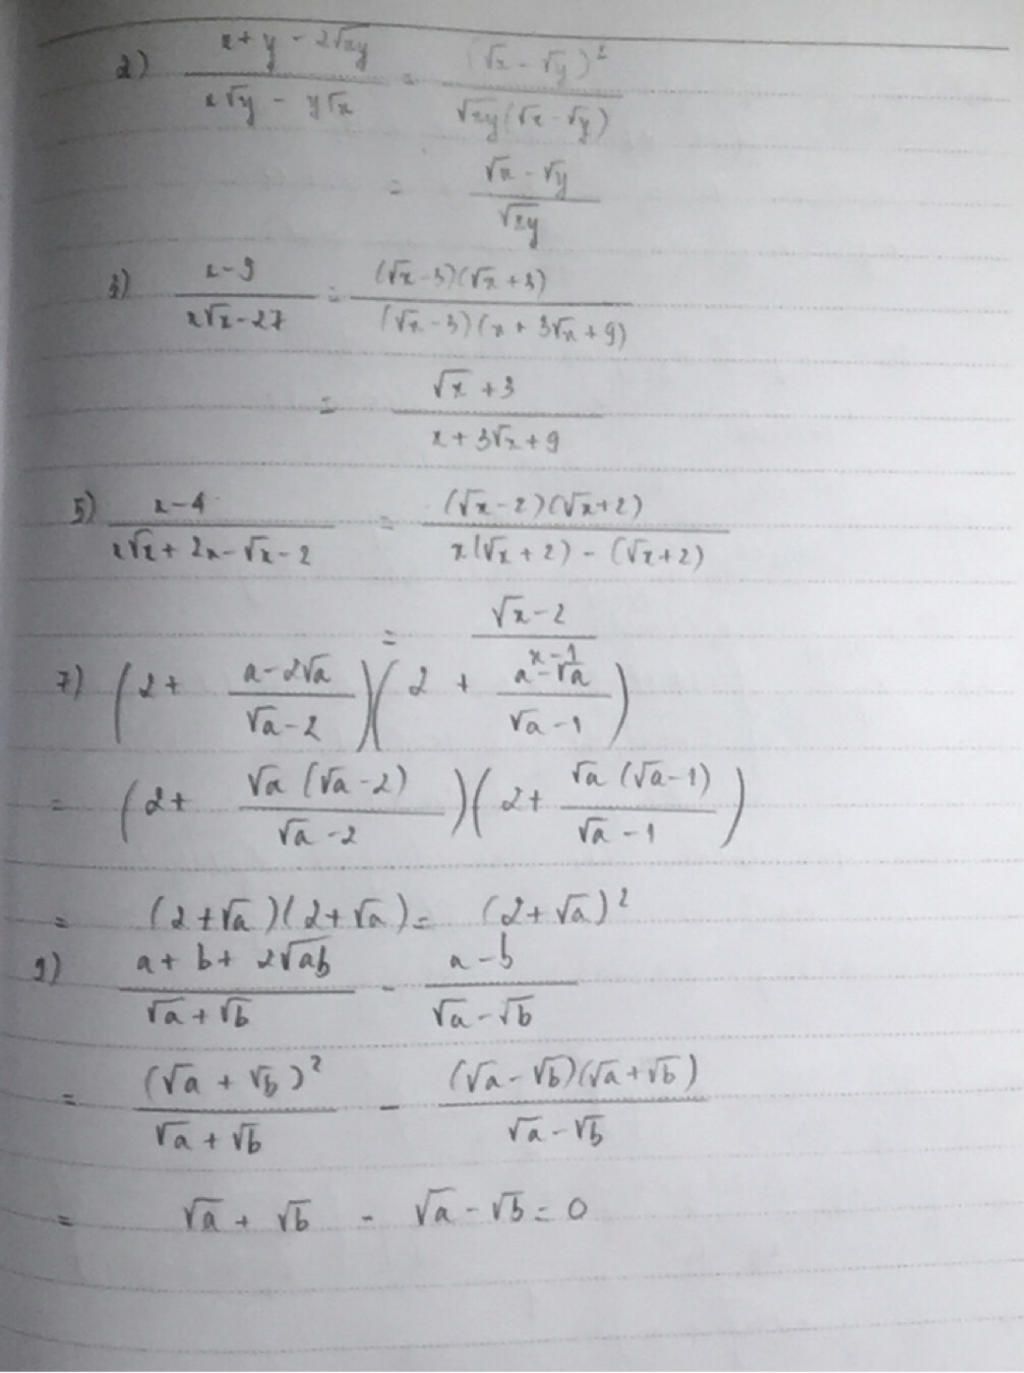 2) (x + y - 2√xy)/(x√y - y√x) = (√x - √y)²/(√xy(√x - √y))
= (√x - √y)/√xy
3) (x - 9)/(x√x - 27) = (√x - 3)(√x + 3)/((√x - 3)(x + 3√x + 9))
= (√x + 3)/(x + 3√x + 9)
5) (x - 4)/(x√x + 2x - √x - 2) = (√x - 2)(√x + 2)/(x(√x + 2) - (√x + 2))
= (√x - 2)/(x - 1)
7) (2 + (a - 2√a)/(√a - 2))(2 + (a - √a)/(√a - 1))
= (2 + √a(√a - 2)/(√a - 2))(2 + √a(√a - 1)/(√a - 1))
= (2 + √a)(2 + √a) = (2 + √a)²
9) (a + b + 2√ab)/(√a + √b) - (a - b)/(√a - √b)
= (√a + √b)²/(√a + √b) - (√a - √b)(√a + √b)/(√a - √b)
= √a + √b - √a - √b = 0